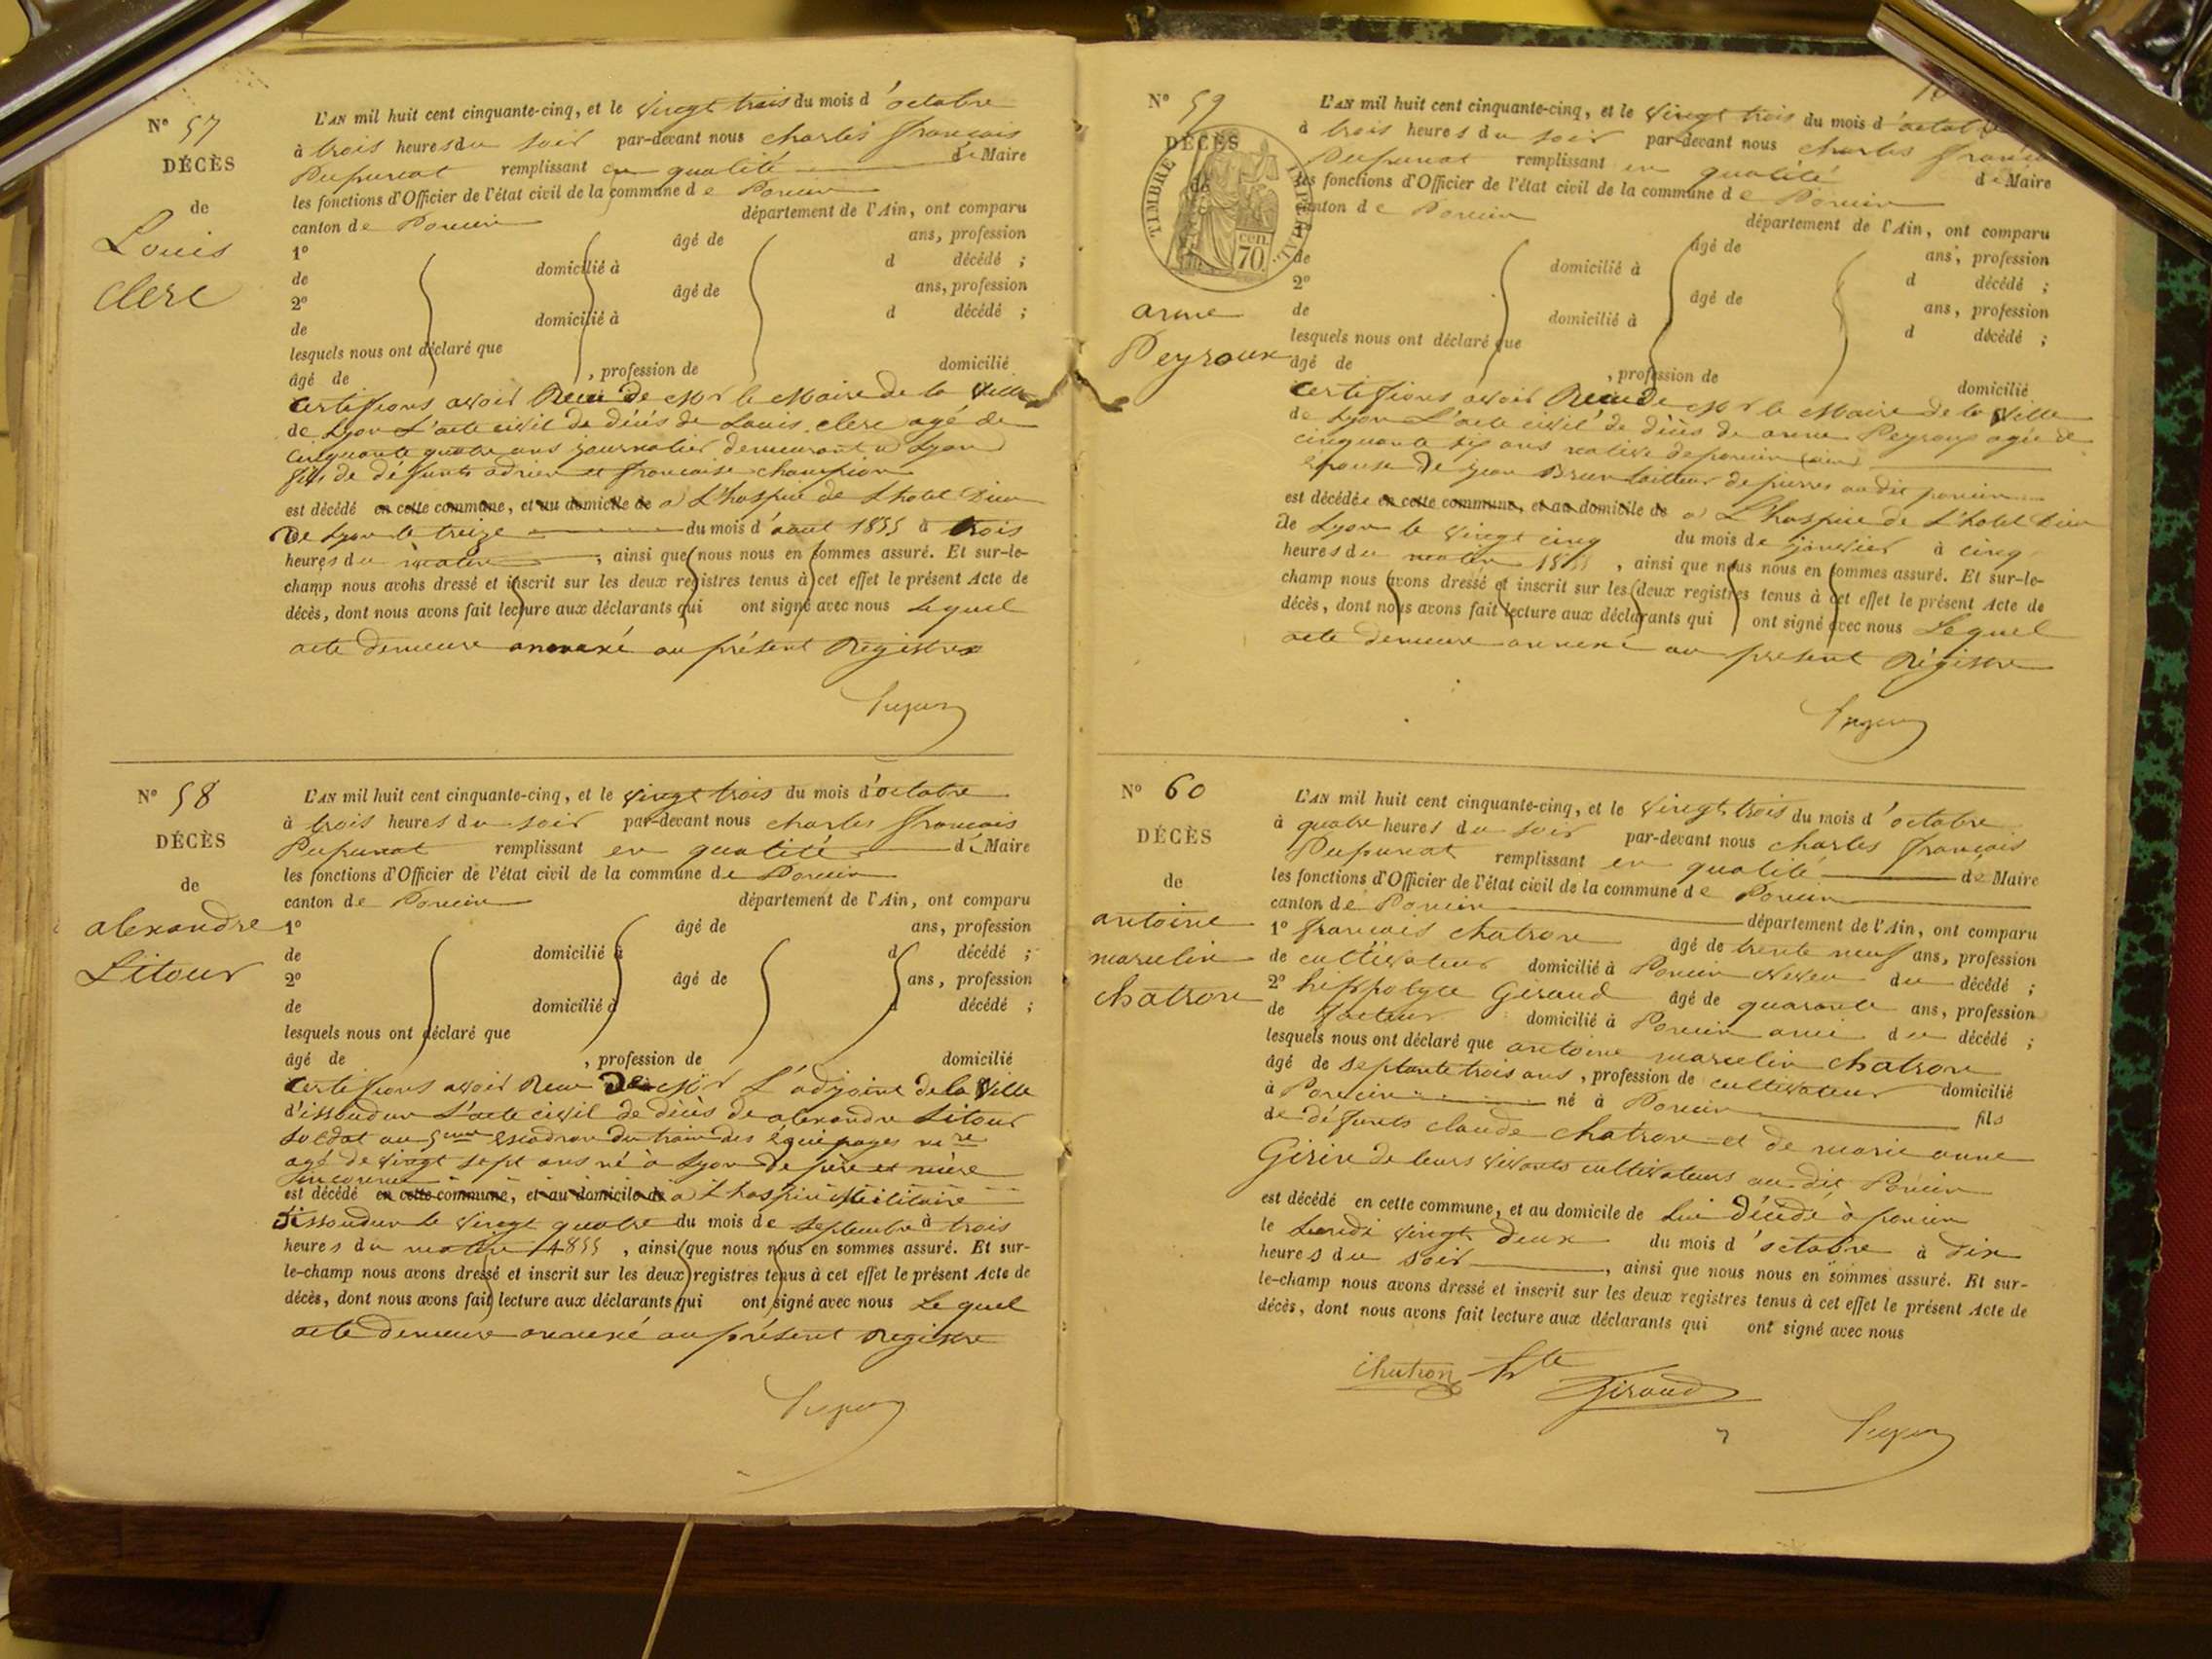 N° 57
DÉCÈS
de
Louis
Clerc
L'AN mil huit cent cinquante-cinq, et le vingt trois du mois d'octobre
à trois heures du soir par-devant nous charles françois
Pupunat remplissant en qualité de Maire
les fonctions d'Officier de l'état civil de la commune de Poncin
canton de Poncin département de l'Ain, ont comparu
1° âgé de ans, profession
de domicilié à d décédé ;
2° âgé de ans, profession
de domicilié à d décédé ;
lesquels nous ont déclaré que
âgé de , profession de domicilié
certifions avoir Recu de Mr le Maire de la Ville
de Lyon L'acte civil de décès de Louis clerc agé de
cinquante quatre ans journalier demeurant a Lyon
fils de défunts adrien et françoise champion
est décédé en cette commune, et au domicile de a L'hospice de L'hotel Dieu
De Lyon le treize du mois d'aout 1855 à trois
heures du matin , ainsi que nous nous en sommes assuré. Et sur-le-
champ nous avons dressé et inscrit sur les deux registres tenus à cet effet le présent Acte de
décès, dont nous avons fait lecture aux déclarants qui ont signé avec nous Lequel
acte demeure annexé au présent Registre
N° 58
DÉCÈS
de
alexandre
Litour
L'AN mil huit cent cinquante-cinq, et le vingt trois du mois d'octobre
à trois heures du soir par-devant nous charles françois
Pupunat remplissant en qualité de Maire
les fonctions d'Officier de l'état civil de la commune de Poncin
canton de Poncin département de l'Ain, ont comparu
1° âgé de ans, profession
de domicilié à d décédé ;
2° âgé de ans, profession
de domicilié à d décédé ;
lesquels nous ont déclaré que
âgé de , profession de domicilié
certifions avoir Recu De Mr L'adjoint de la Ville
d'issoudun L'acte civil de décès de alexandre Litour
soldat au 5eme escadron du train des équipages mre
agé de vingt sept ans né à Lyon De père et mère
inconnu
est décédé en cette commune, et au domicile de a L'hospice Militaire
d'issoudun le vingt quatre du mois de septembre à trois
heures du matin 1855 , ainsi que nous nous en sommes assuré. Et sur-
le-champ nous avons dressé et inscrit sur les deux registres tenus à cet effet le présent Acte de
décès, dont nous avons fait lecture aux déclarants qui ont signé avec nous Lequel
acte demeure annexé au présent registre
N° 59
DÉCÈS
de
TIMBRE IMPÉRIAL
cen.
70
anne
Peyroux
L'AN mil huit cent cinquante-cinq, et le vingt trois du mois d'octobre
à trois heures du soir par-devant nous charles françois
Pupunat remplissant en qualité de Maire
les fonctions d'Officier de l'état civil de la commune de Poncin
canton de Poncin département de l'Ain, ont comparu
âgé de ans, profession
de domicilié à d décédé ;
2° âgé de ans, profession
de domicilié à d décédé ;
lesquels nous ont déclaré que
âgé de , profession de domicilié
certifions avoir Recu De Mr le Maire de la Ville
de Lyon L'acte civil de décès de anne Peyroux agée de
cinquante six ans native de poncin (ain)
épouse de jean Brun tailleur de pierres au dit poncin
est décédée en cette commune, et au domicile de a L'hospice de L'hotel Dieu
de Lyon le vingt cinq du mois de janvier à cinq
heures du matin 1855 , ainsi que nous nous en sommes assuré. Et sur-le-
champ nous avons dressé et inscrit sur les deux registres tenus à cet effet le présent Acte de
décès, dont nous avons fait lecture aux déclarants qui ont signé avec nous Lequel
acte demeure annexé au présent Régistre
N° 60
DÉCÈS
de
antoine
marcelin
chatron
L'AN mil huit cent cinquante-cinq, et le vingt trois du mois d'octobre
à quatre heures du soir par-devant nous charles françois
Pupunat remplissant en qualité de Maire
les fonctions d'Officier de l'état civil de la commune de Poncin
canton de Poncin département de l'Ain, ont comparu
1° françois chatron âgé de trente neuf ans, profession
de cultivateur domicilié à Poncin Neveu du décédé ;
2° hippolyte Giraud âgé de quarante ans, profession
de facteur domicilié à Poncin ami du décédé ;
lesquels nous ont déclaré que antoine marcelin chatron
âgé de septante trois ans , profession de cultivateur domicilié
à Poncin né à Poncin fils
de défunts claude chatron et de marie anne
Girin de leurs vivants cultivateurs au dit Poncin
est décédé en cette commune, et au domicile de Lui décédé à poncin
le Lundi vingt deux du mois d'octobre à dix
heures du soir , ainsi que nous nous en sommes assuré. Et sur-
le-champ nous avons dressé et inscrit sur les deux registres tenus à cet effet le présent Acte de
décès, dont nous avons fait lecture aux déclarants qui ont signé avec nous
Chatron hte
Giraud